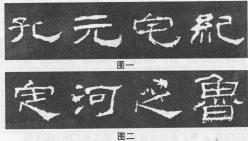 孔元宅紀
图一
定河 魯
图二